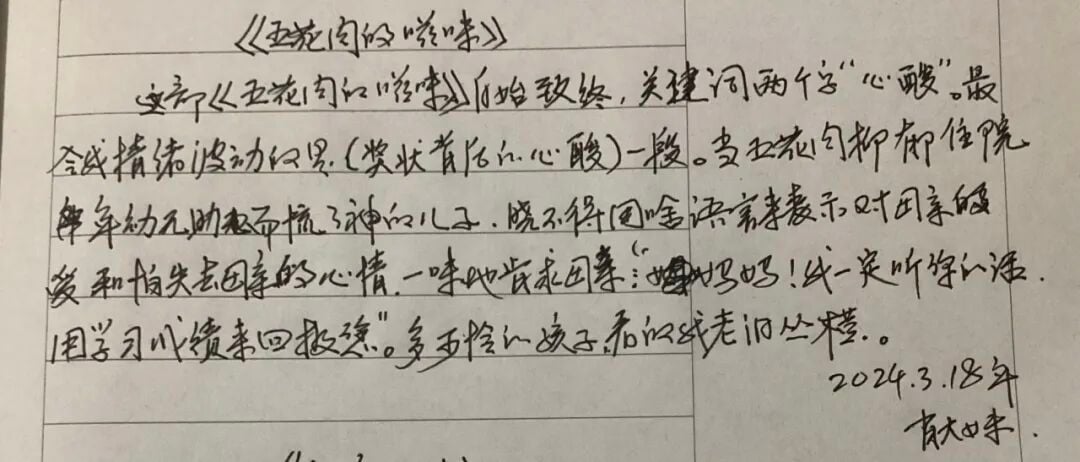 《五花肉的嗞味》
这部《五花肉的嗞味》自始致终,关建词两个字“心酸”。最
令我情绪波动的是(奖状背后的心酸)一段。当五花肉抑郁住院
年幼无助而慌了神的儿子,晓不得用啥语言来表示对母亲的
爱和怕失去母亲的心情,一味地肯求母亲:“妈妈!我一定听你的话.
用学习成绩来回报您”。多可怜的孩子,看的我老泪丛横.。
2024.3.18年
肖大妹.